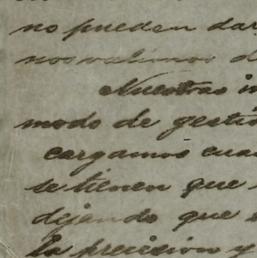 no pueden dar
nos valimos d
Nuestras i
modo de gestio
cargamos cua
se tienen que
dejando que
la precision y